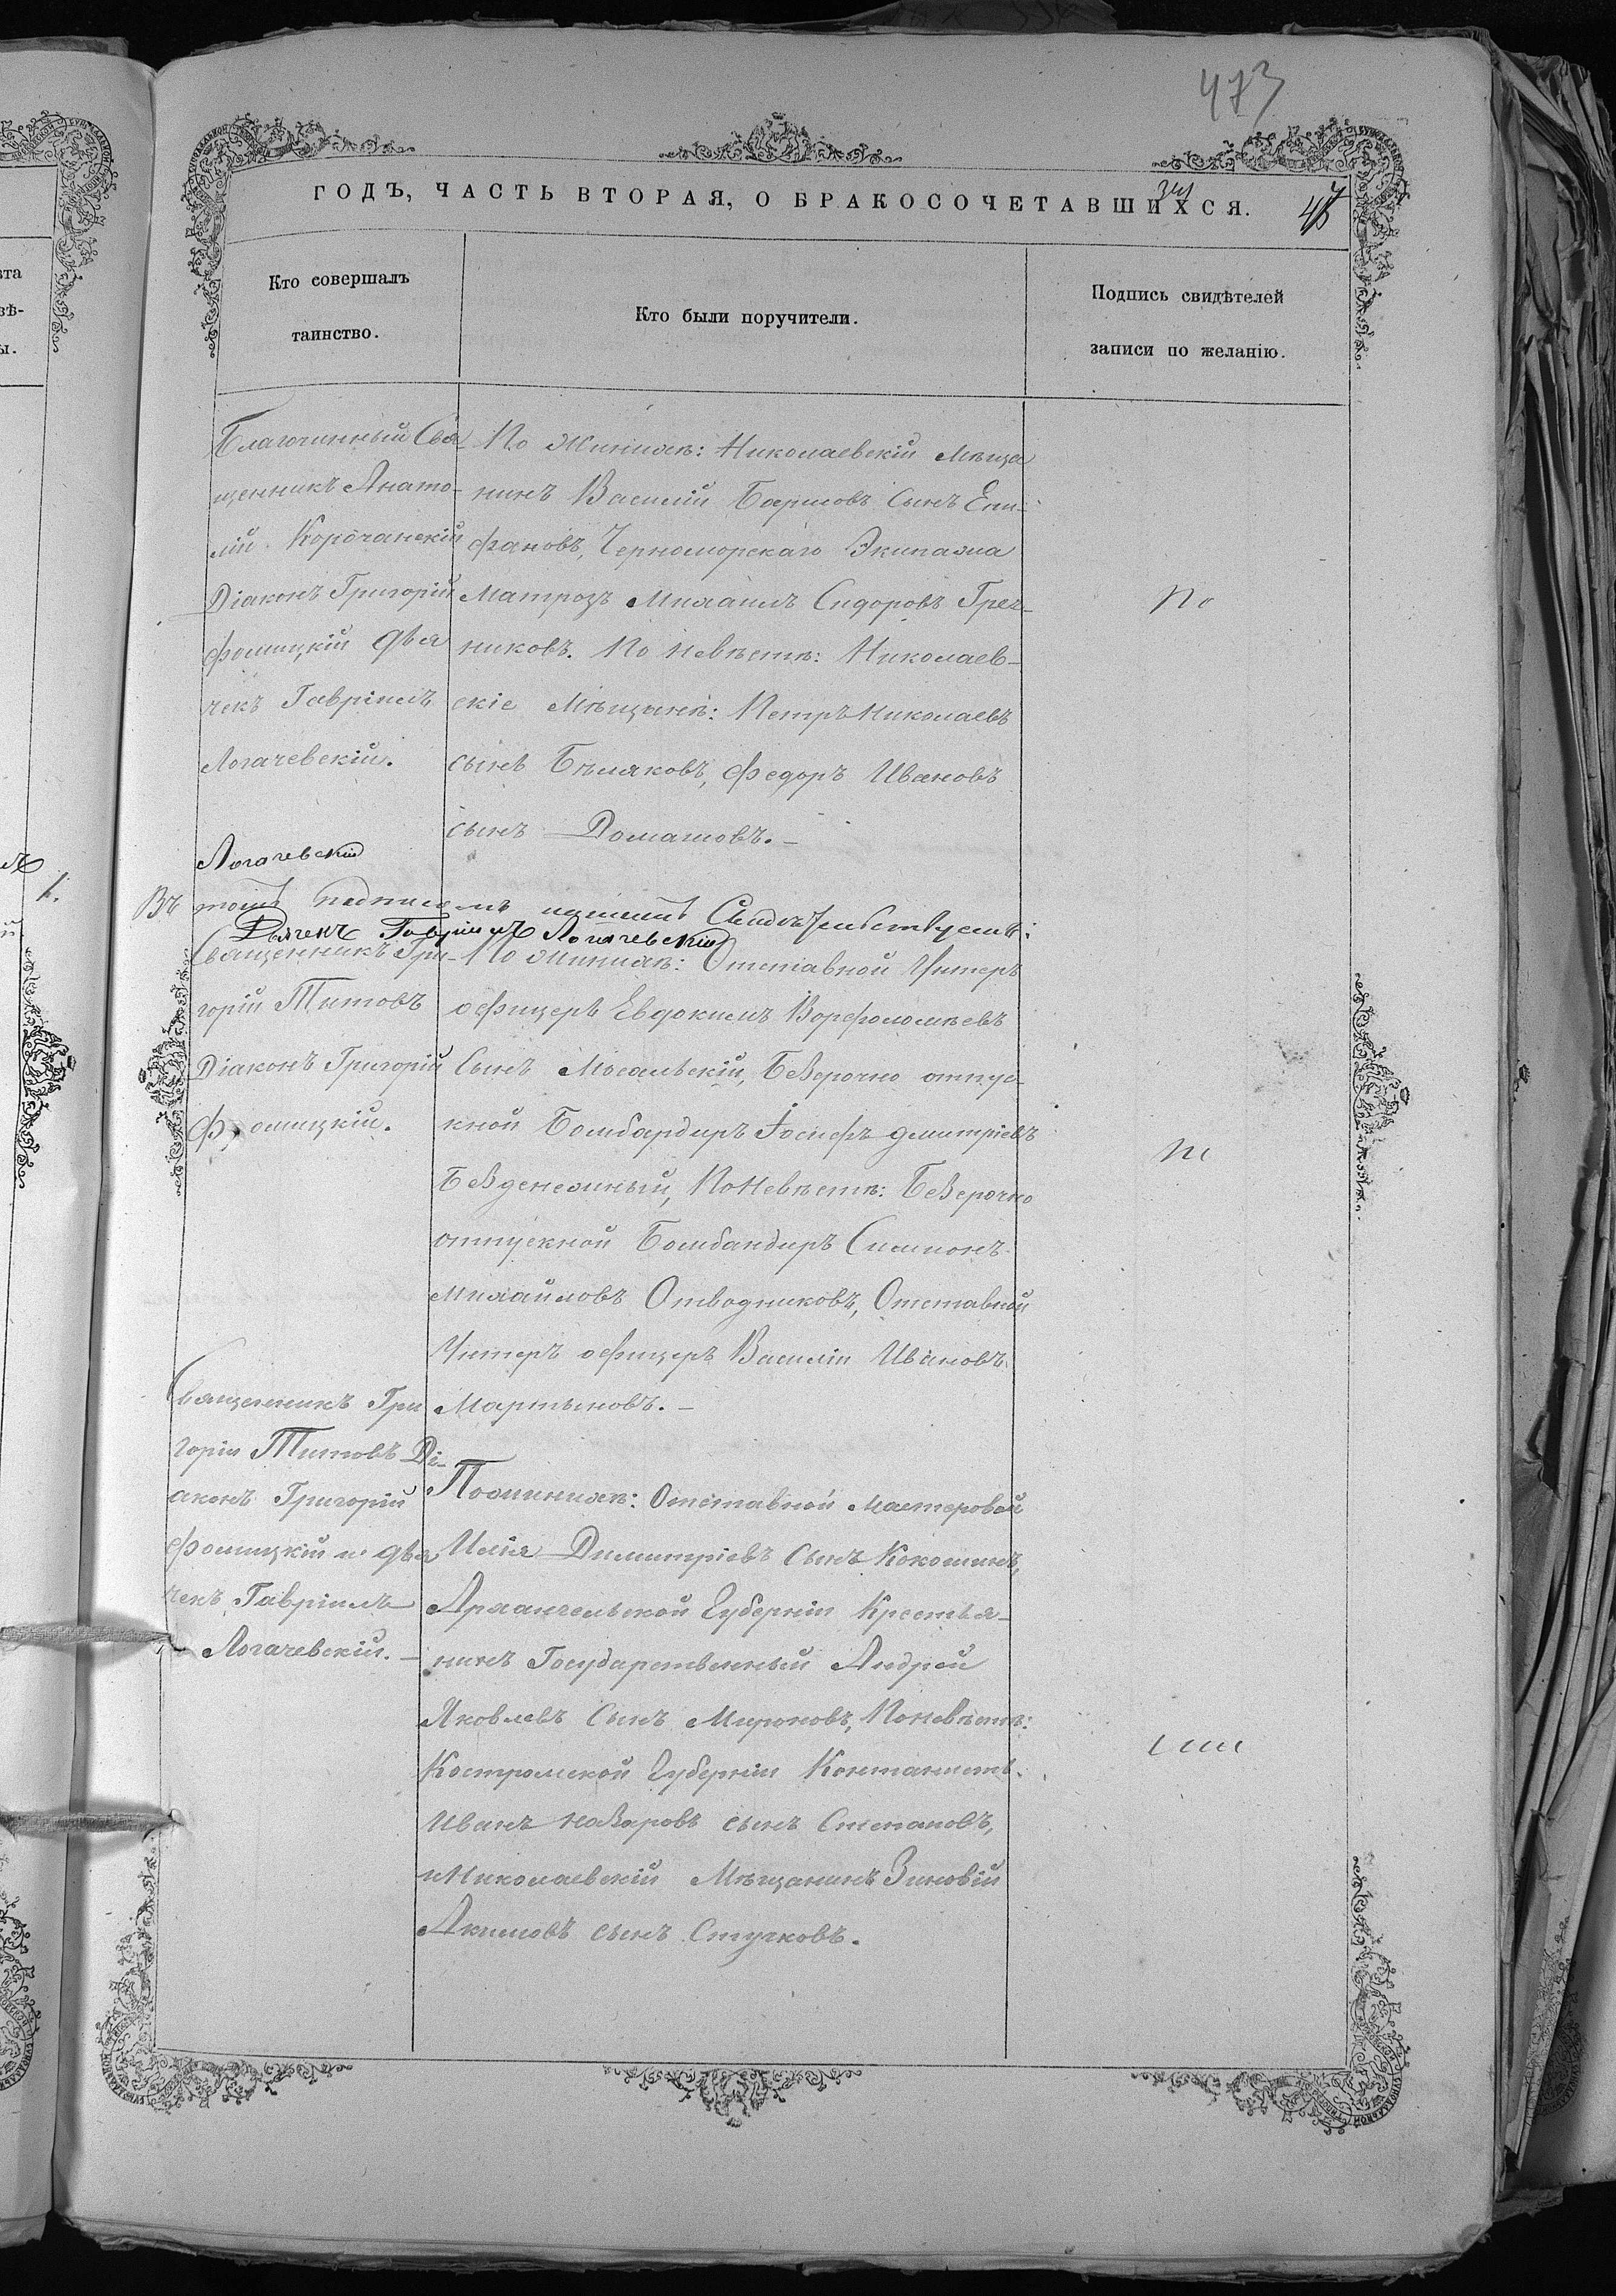 473
ГОДЪ, ЧАСТЬ ВТОРАЯ, О БРАКОСОЧЕТАВШИХСЯ.
Кто совершалъ
таинство.
Кто были поручители.
Подпись свидѣтелей
записи по желанію.
Благочинный Свя
щенникъ Анато-
лій Корочанскій
Діаконъ Григорій
Фомицкій дья
чекъ Гавріилъ
Логачевскій.
По женихѣ: Николаевскій Мѣща
нинъ Василій Борисовъ Сынъ Епи-
фановъ, Черноморскаго Экипажа
Матрозъ Михаилъ Сидоровъ Греч-
никовъ. По невѣстѣ: Николаев-
скіе Мѣщанѣ: Петръ Николаевъ
сынъ Бѣляковъ, Федоръ Ивановъ
сынъ Домашовъ.-
По
Логачевскій
Въ томъ подписомъ нашимъ Свидѣтельствуемъ:
Дьячекъ Гавріилъ Логачевскій
Священникъ Гри-
горій Титовъ
Діаконъ Григорій
Фомицкій.
По женихѣ: Отставной Унтеръ
офицеръ Евдокимъ Ворфоломѣевъ
Сынъ Мосальскій, безсрочно отпус-
кной Бомбардиръ Іосифъ Дмитріевъ
Безденежный, По Невѣстѣ: Безсрочно
отпускной Бомбандиръ Симионъ
Михайловъ Отводниковъ, Отставной
Унтеръ офицеръ Василій Ивановъ
Мартыновъ.-
Священникъ Гри
горій Титовъ Ді-
аконъ Григорій
Фомицкій и дья
чекъ Гавріилъ
Логачевскій.-
По женихѣ: Отставной мастеровой
Илія Димитріевъ Сынъ Кокошинъ,
Архангельской Губерніи Крестья-
нинъ Государственный Андрей
Яковлевъ Сынъ Мироновъ, По невѣстѣ:
Костромской Губерніи Контанистъ
Иванъ Назаровъ сынъ Степановъ,
Николаевскій Мѣщанинъ Зиновій
Акимовъ сынъ Стучковъ.